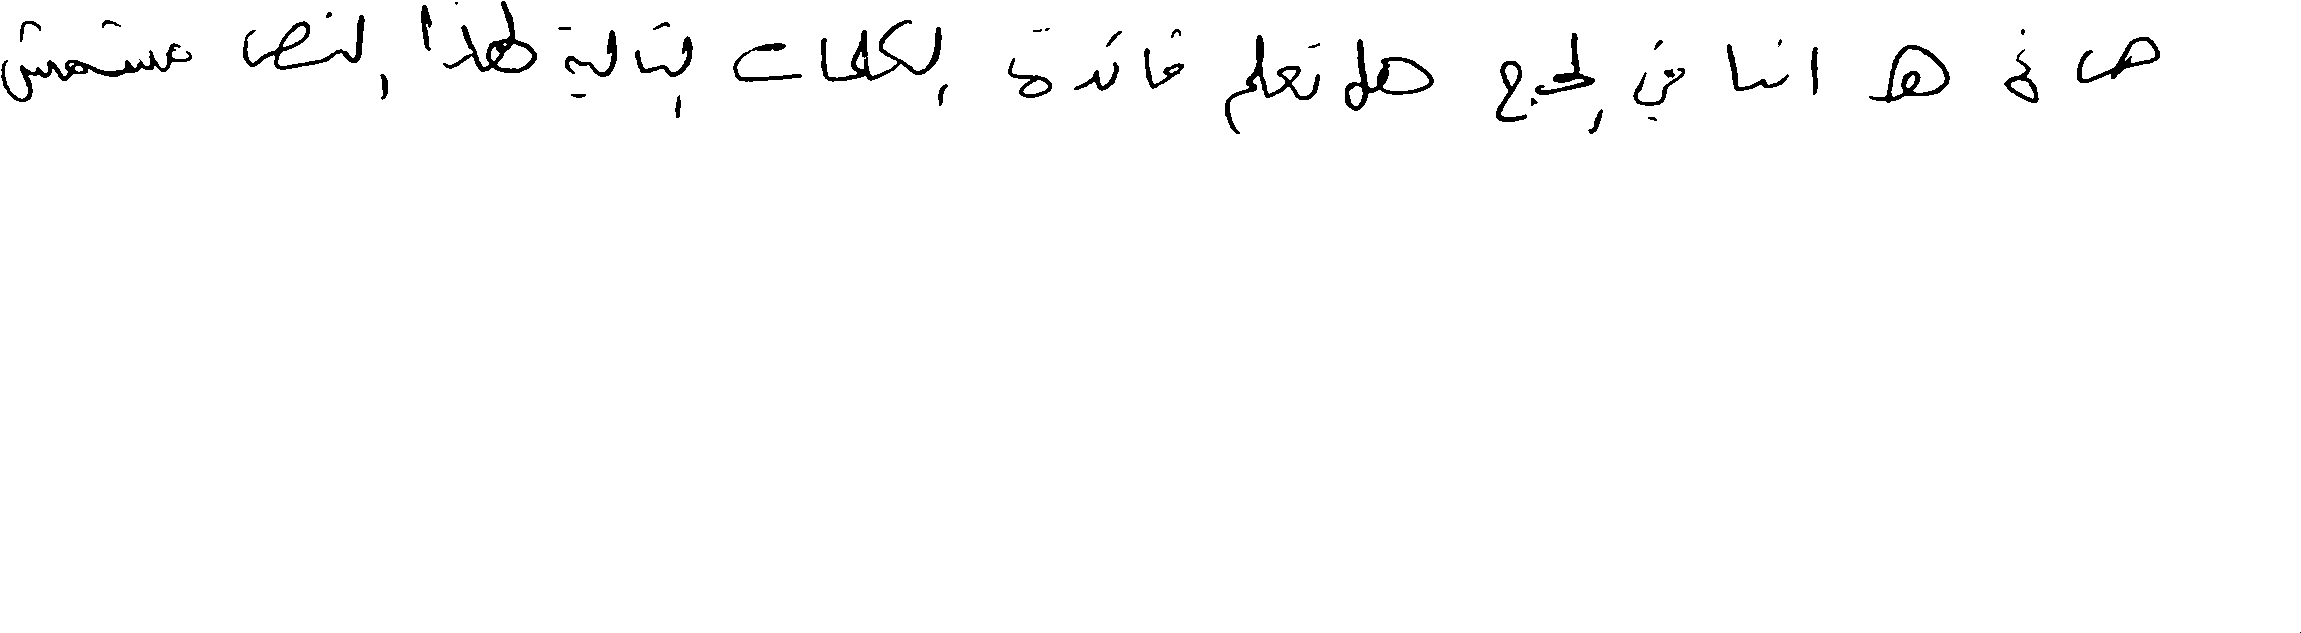 ص في هد انسا في الحج هل تعلم فائدة الكلمات التالية لهذا النص